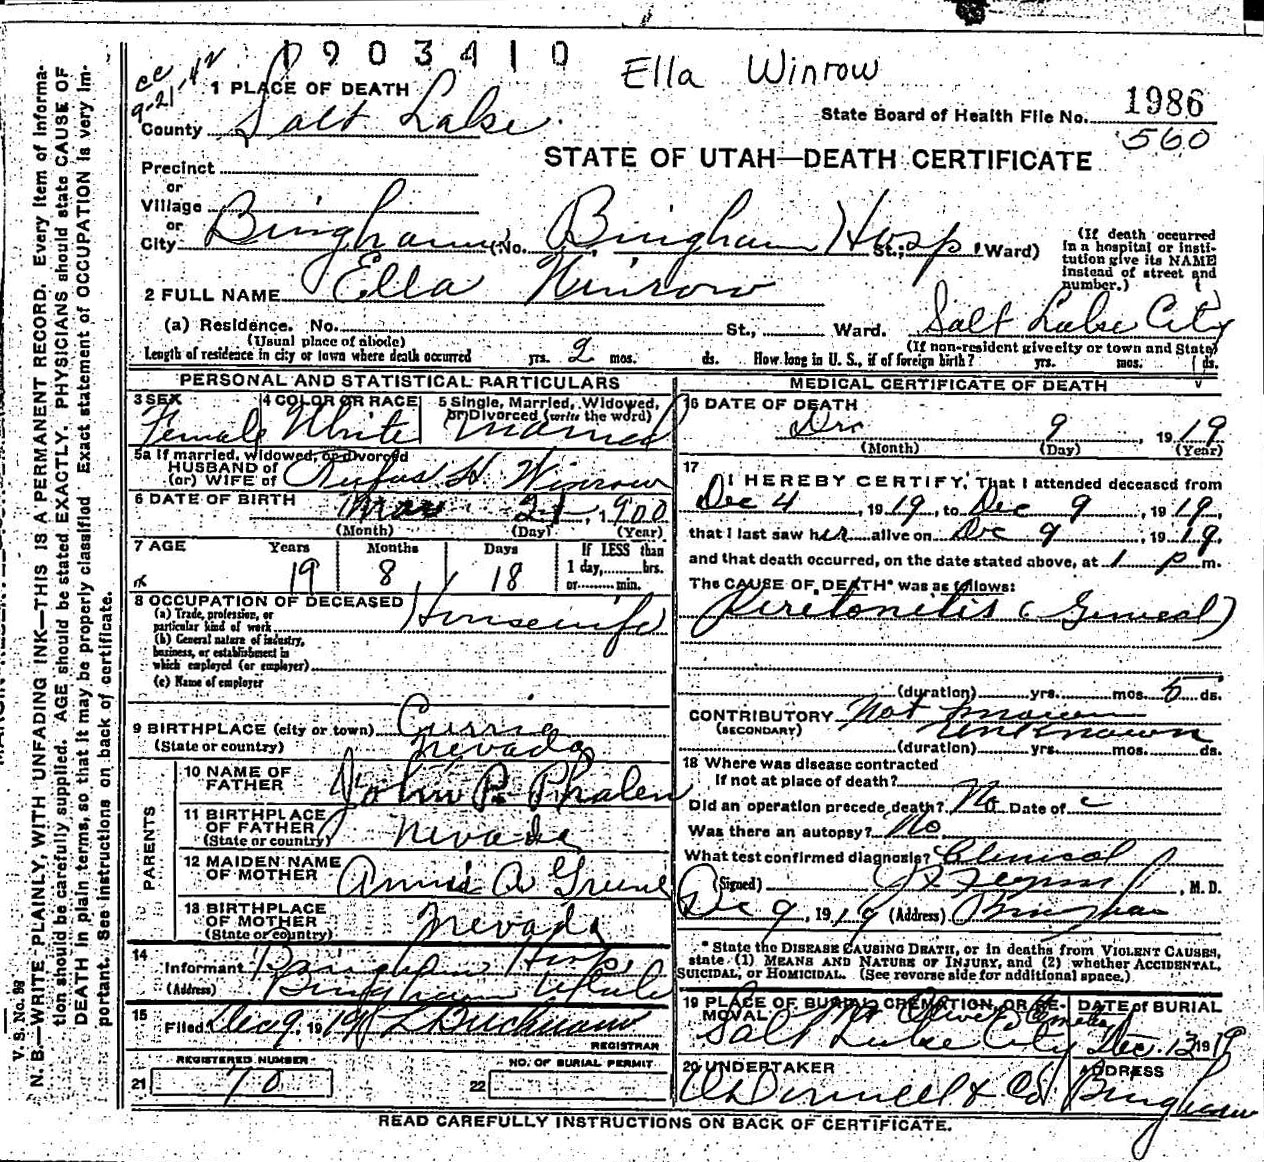 1903410
Ella Winrow
cc
9-21-42
1 PLACE OF DEATH
County Salt Lake
State Board of Health File No. 1986
560
STATE OF UTAH—DEATH CERTIFICATE
Precinct
or
Village
or
City Bingham (No. Bingham Hosp St.; Ward)
(If death occurred in a hospital or institution give its NAME instead of street and number.)
2 FULL NAME Ella Winrow
(a) Residence. No. St., Ward. Salt Lake City
(Usual place of abode) (If non-resident give city or town and State)
Length of residence in city or town where death occurred yrs. 2 mos. ds. How long in U. S., if of foreign birth? yrs. mos. ds.
PERSONAL AND STATISTICAL PARTICULARS
3 SEX 4 COLOR OR RACE 5 Single, Married, Widowed, or Divorced (write the word)
Female White Married
5a If married, widowed, or divorced
HUSBAND of
(or) WIFE of Rufus H. Winrow
6 DATE OF BIRTH Mar 21, 1900
(Month) (Day) (Year)
7 AGE Years Months Days If LESS than
1 day, hrs.
or min.
19 8 18
8 OCCUPATION OF DECEASED Housewife
(a) Trade, profession, or
particular kind of work
(b) General nature of industry,
business, or establishment in
which employed (or employer)
(c) Name of employer
9 BIRTHPLACE (city or town) Currie
(State or country) Nevada
PARENTS
10 NAME OF FATHER John P. Phalen
11 BIRTHPLACE OF FATHER (State or country) Nevada
12 MAIDEN NAME OF MOTHER Annie A Greene
13 BIRTHPLACE OF MOTHER (State or country) Nevada
14 Informant Bingham Hosp.
(Address) Bingham Utah
15 Filed Dec 9, 1919
REGISTRAR
REGISTERED NUMBER
21 70
NO. OF BURIAL PERMIT
22
MEDICAL CERTIFICATE OF DEATH
16 DATE OF DEATH
Dec 9, 1919
(Month) (Day) (Year)
17 I HEREBY CERTIFY, That I attended deceased from
Dec 4, 1919, to Dec 9, 1919,
that I last saw her alive on Dec 9, 1919,
and that death occurred, on the date stated above, at 1 p m.
The CAUSE OF DEATH* was as follows:
Peretonetis (General)
(duration) yrs. mos. 5 ds.
CONTRIBUTORY Not known
(SECONDARY) Unknown
(duration) yrs. mos. ds.
18 Where was disease contracted
If not at place of death?
Did an operation precede death? No Date of
Was there an autopsy? No
What test confirmed diagnosis? Clinical
(Signed) , M. D.
Dec 9, 1919 (Address) Bingham
* State the DISEASE CAUSING DEATH, or in deaths from VIOLENT CAUSES,
state (1) MEANS AND NATURE OF INJURY, and (2) whether ACCIDENTAL,
SUICIDAL, or HOMICIDAL. (See reverse side for additional space.)
19 PLACE OF BURIAL, CREMATION, OR REMOVAL Mt Olivet Cemetery
Salt Lake City
DATE of BURIAL
Dec. 13 1919
20 UNDERTAKER
O'Donnell & Co
ADDRESS
Bingham
READ CAREFULLY INSTRUCTIONS ON BACK OF CERTIFICATE.
V. S. No. 98
N. B.—WRITE PLAINLY, WITH UNFADING INK—THIS IS A PERMANENT RECORD. Every item of informa-
tion should be carefully supplied. AGE should be stated EXACTLY. PHYSICIANS should state CAUSE OF
DEATH in plain terms, so that it may be properly classified. Exact statement of OCCUPATION is very im-
portant. See instructions on back of certificate.